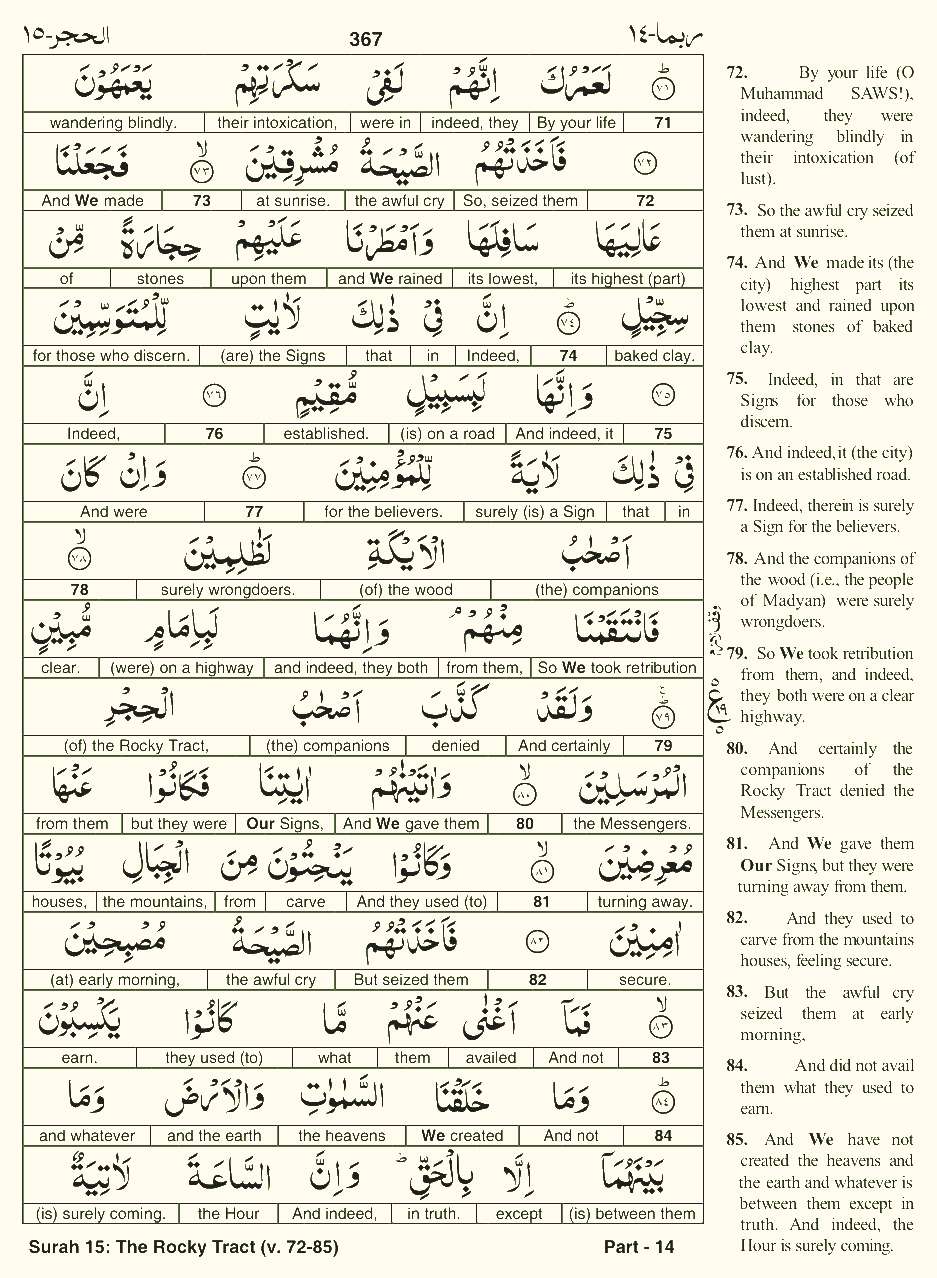 الحجر-١٥
367
ربما-١٤
٧١ لَعَمْرُكَ اِنَّهُمْ لَفِيْ سَكْرَتِهِمْ يَعْمَهُوْنَ
71 | By your life | indeed, they | were in | their intoxication, | wandering blindly.
٧٢ فَاَخَذَتْهُمُ الصَّيْحَةُ مُشْرِقِيْنَ ٧٣ فَجَعَلْنَا
72 | So, seized them | the awful cry | at sunrise. | 73 | And We made
عَالِيَهَا سَافِلَهَا وَاَمْطَرْنَا عَلَيْهِمْ حِجَارَةً مِّنْ
its highest (part) | its lowest, | and We rained | upon them | stones | of
سِجِّيْلٍ ٧٤ اِنَّ فِيْ ذٰلِكَ لَاٰيٰتٍ لِّلْمُتَوَسِّمِيْنَ
baked clay. | 74 | Indeed, | in | that | (are) the Signs | for those who discern.
٧٥ وَاِنَّهَا لَبِسَبِيْلٍ مُّقِيْمٍ ٧٦ اِنَّ
75 | And indeed, it | (is) on a road | established. | 76 | Indeed,
فِيْ ذٰلِكَ لَاٰيَةً لِّلْمُؤْمِنِيْنَ ٧٧ وَاِنْ كَانَ
in | that | surely (is) a Sign | for the believers. | 77 | And were
اَصْحٰبُ الْاَيْكَةِ لَظٰلِمِيْنَ ٧٨
(the) companions | (of) the wood | surely wrongdoers. | 78
فَانْتَقَمْنَا مِنْهُمْ وَاِنَّهُمَا لَبِاِمَامٍ مُّبِيْنٍ
So We took retribution | from them, | and indeed, they both | (were) on a highway | clear.
٧٩ وَلَقَدْ كَذَّبَ اَصْحٰبُ الْحِجْرِ
79 | And certainly | denied | (the) companions | (of) the Rocky Tract,
الْمُرْسَلِيْنَ ٨٠ وَاٰتَيْنٰهُمْ اٰيٰتِنَا فَكَانُوْا عَنْهَا
the Messengers. | 80 | And We gave them | Our Signs, | but they were | from them
مُعْرِضِيْنَ ٨١ وَكَانُوْا يَنْحِتُوْنَ مِنَ الْجِبَالِ بُيُوْتًا
turning away. | 81 | And they used (to) | carve | from | the mountains, | houses,
اٰمِنِيْنَ ٨٢ فَاَخَذَتْهُمُ الصَّيْحَةُ مُصْبِحِيْنَ
secure. | 82 | But seized them | the awful cry | (at) early morning,
٨٣ فَمَاۤ اَغْنٰى عَنْهُمْ مَّا كَانُوْا يَكْسِبُوْنَ
83 | And not | availed | them | what | they used (to) | earn.
٨٤ وَمَا خَلَقْنَا السَّمٰوٰتِ وَالْاَرْضَ وَمَا
84 | And not | We created | the heavens | and the earth | and whatever
بَيْنَهُمَاۤ اِلَّا بِالْحَقِّ وَاِنَّ السَّاعَةَ لَاٰتِيَةٌ
(is) between them | except | in truth. | And indeed, | the Hour | (is) surely coming.
72. By your life (O
Muhammad SAWS!),
indeed, they were
wandering blindly in
their intoxication (of
lust).
73. So the awful cry seized
them at sunrise.
74. And We made its (the
city) highest part its
lowest and rained upon
them stones of baked
clay.
75. Indeed, in that are
Signs for those who
discern.
76. And indeed, it (the city)
is on an established road.
77. Indeed, therein is surely
a Sign for the believers.
78. And the companions of
the wood (i.e., the people
of Madyan) were surely
wrongdoers.
79. So We took retribution
from them, and indeed,
they both were on a clear
highway.
80. And certainly the
companions of the
Rocky Tract denied the
Messengers.
81. And We gave them
Our Signs, but they were
turning away from them.
82. And they used to
carve from the mountains
houses, feeling secure.
83. But the awful cry
seized them at early
morning,
84. And did not avail
them what they used to
earn.
85. And We have not
created the heavens and
the earth and whatever is
between them except in
truth. And indeed, the
Hour is surely coming.
Surah 15: The Rocky Tract (v. 72-85)
Part - 14